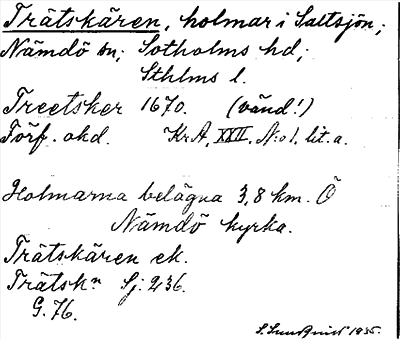 Trätskären, holmar i Saltsjön;
Nämdö sn; Sotholms hd;
Sthlms l.
Treetsker 1670. (vänd!)
Förf. okd. KrA, XXII. N:o 1. lit. a.
Holmarna belägna 3,8 km. Ö
Nämdö kyrka.
Trätskären ek.
Trätskn Sj. 236.
G. 76.
S. Sundqvist 1935.